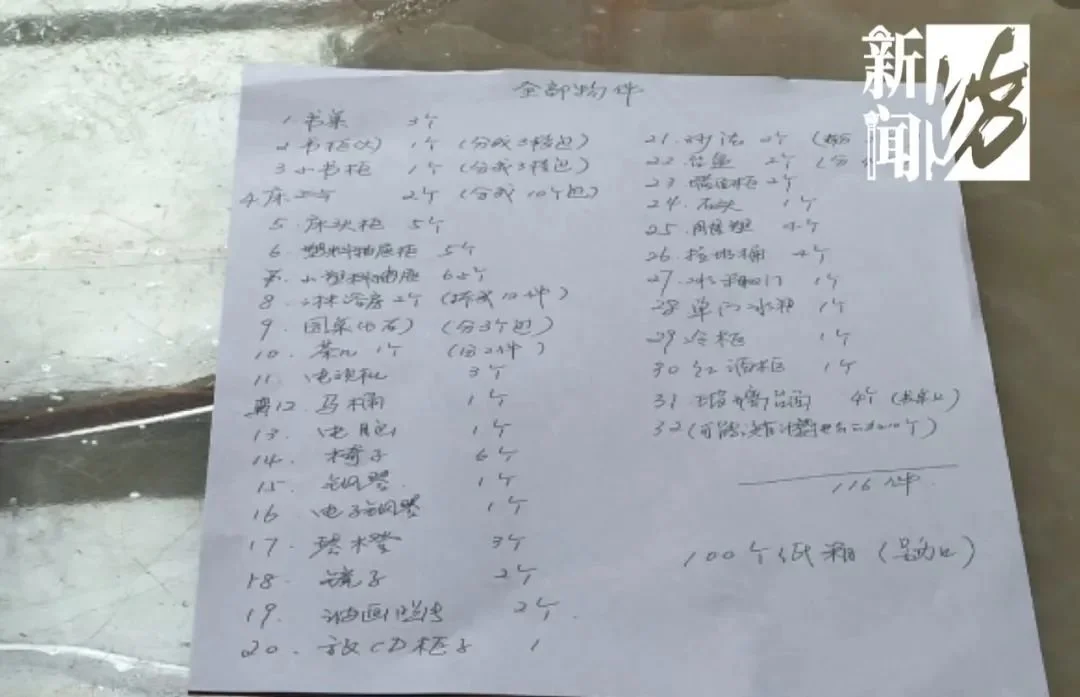 新闻坊
全部物件
1. 书桌 3个
2. 书柜(大) 1个 (分成3档包)
3. 小书柜 1个 (分成3档包)
4. 床 2个 (分成10个包)
5. 床头柜 5个
6. 塑料抽屉柜 5个
小塑料抽屉 6个
8. 淋浴房 2个 (拆成10件)
9. 圆桌(石) (分3个包)
10. 茶几 1个 (分2件)
11. 电视机 3个
12 马桶 1个
13. 电脑 1个
14. 椅子 6个
15. 钢琴 1个
16 电子钢琴 1个
17. 琴凳 3个
18. 镜子 2个
19. 油画 2个
20. 放CD柜子 1
21. 沙法 2个
22. 2个 (分
23 柜 2个
24. 石头 1个
25.
26. 垃圾桶 4个
27. 冰箱 门 1个
28 单门冰箱 1个
29 冷柜 1个
30 红酒柜 1个
31 4个
32 (可能
116件
100个纸箱 ( )